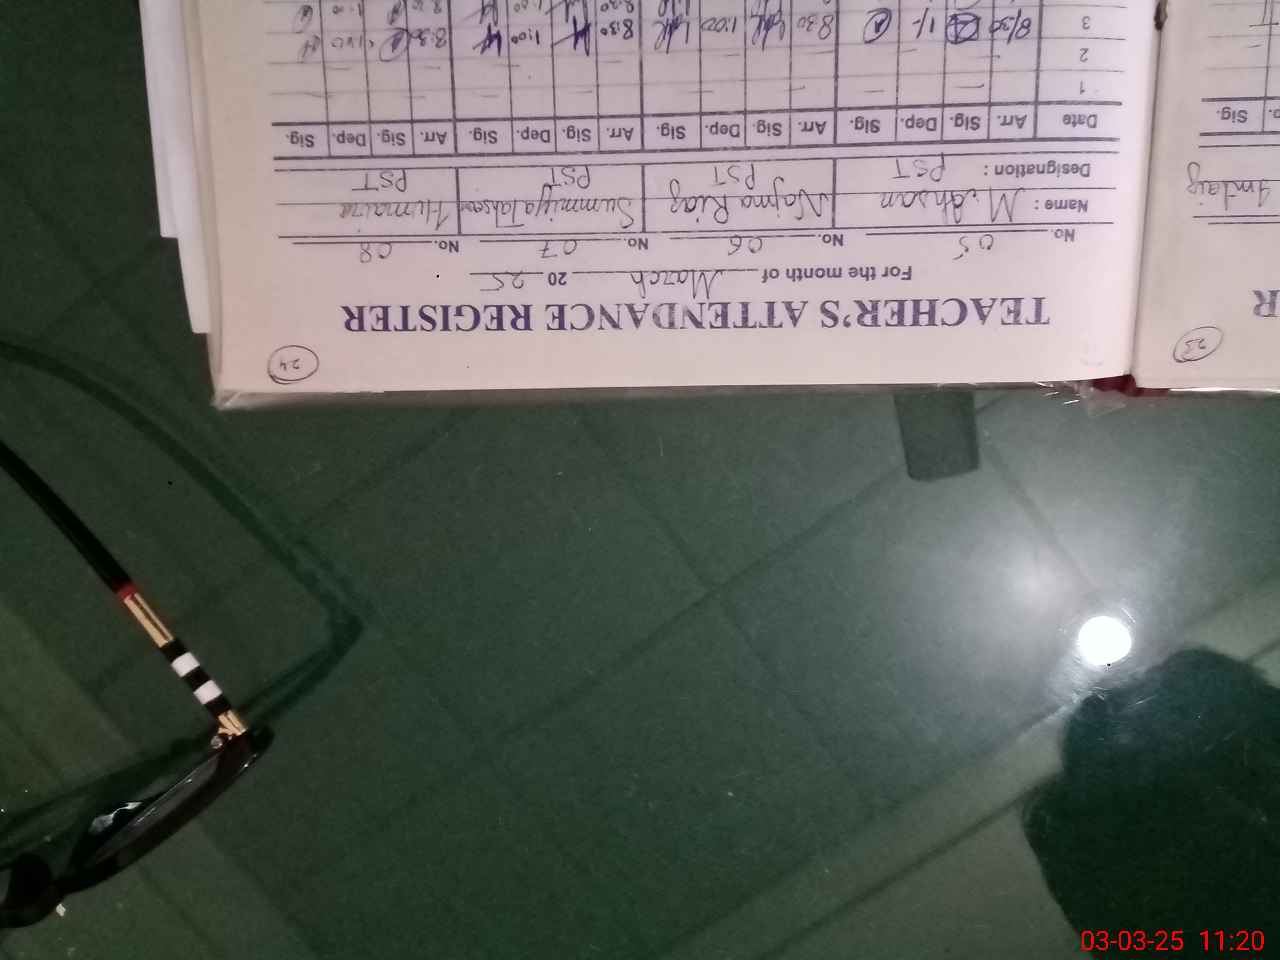 24
TEACHER'S ATTENDANCE REGISTER
For the month of March 2025
No. 05 No. 06 No. 07 No. 08
Name : M. Ahsan Najma Riaz Summiya Tahseen Humaira
Designation : PST PST PST PST
Date Arr. Sig. Dep. Sig. Arr. Sig. Dep. Sig. Arr. Sig. Dep. Sig. Arr. Sig. Dep. Sig.
1
2
3 8/30 1/- 8:30 1:00 8:30 1:00 8:30 1:00
23
R
Sig.
03-03-25 11:20